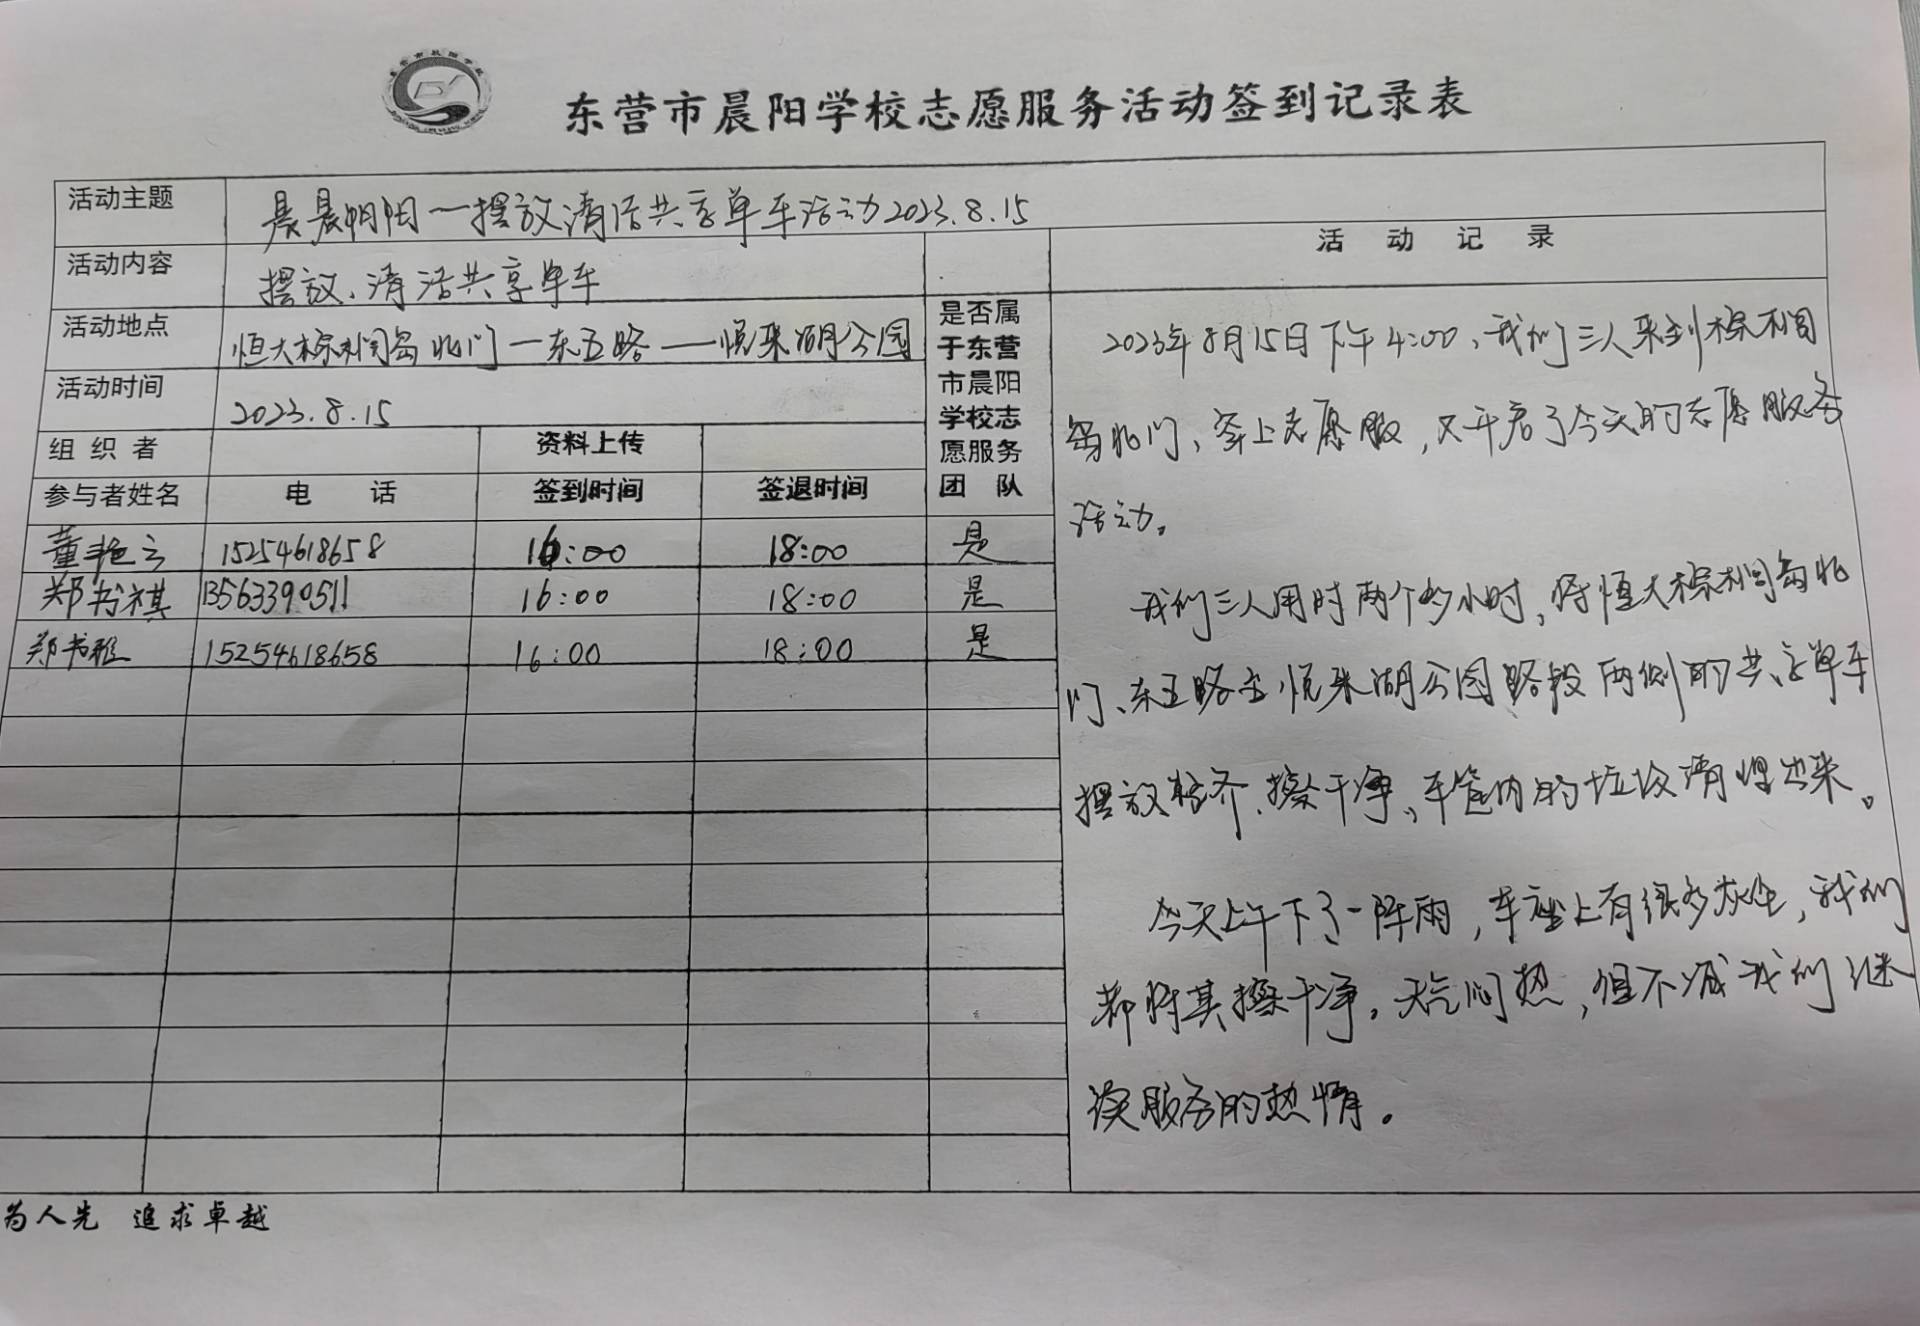 东营市晨阳学校志愿服务活动签到记录表
活动主题 晨晨朝阳一一摆放清洁共享单车活动2023.8.15
活动内容 摆放、清洁共享单车
活动地点 恒大棕榈岛北门一东五路——悦来湖公园
活动时间 2023.8.15
组织者 资料上传
参与者姓名 电话 签到时间 签退时间 是否属于东营市晨阳学校志愿服务团队
董艳云 15254618658 16:00 18:00 是
郑书祺 13563390511 16:00 18:00 是
郑书雅 15254618658 16:00 18:00 是
活动记录
2023年8月15日下午4:00,我们三人来到棕榈
岛北门、穿上志愿服,又开启了今天的志愿服务
活动。
我们三人用时两个多小时,将恒大棕榈岛北
门、东五路至悦来湖公园路段两侧的共享单车
摆放整齐、擦干净、车筐内的垃圾清理出来。
今天上午下了一阵雨,车座上有很多灰尘,我们
都将其擦干净。天气闷热,但不减我们继
续服务的热情。
为人先 追求卓越